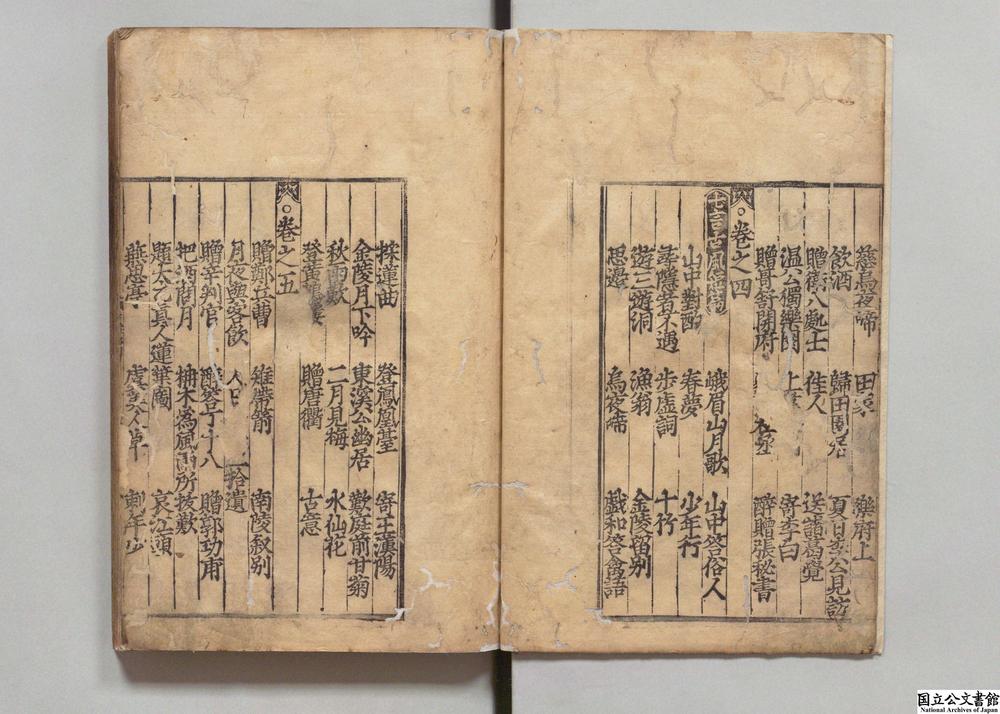 慈烏夜啼 田家 樂府上
飲酒 歸田園居 夏日李公見訪
贈衛八處士 佳人 送諸葛覺
温公獨樂園 上 寄李白
贈哥舒開府 醉贈張秘書
卷之四
七言古風短篇 峨眉山月歌 山中答俗人
山中對酌 春夢 少年行
尋隱者不遇 步虛詞 十竹
遊三遊洞 漁翁 金陵留别
思邊 烏夜啼 戯和答禽語
採蓮曲 登鳳凰䑓 寄王漢陽
金陵月下吟 東溪公幽居 歎庭前甘菊
秋雨歎 二月見梅 水仙花
登黄鶴樓 贈唐衢 古意
卷之五
贈鄭兵曹 雉帶箭 南陵叙别
月夜與客飲 人日 拾遺
贈辛判官 醉答丁十八 贈郭功甫
把酒問月 柟木為風雨所拔歎 哀江頭
題太乙真人蓮葉圖
燕思亭 虞美人草 刺年少
国立公文書館
National Archives of Japan